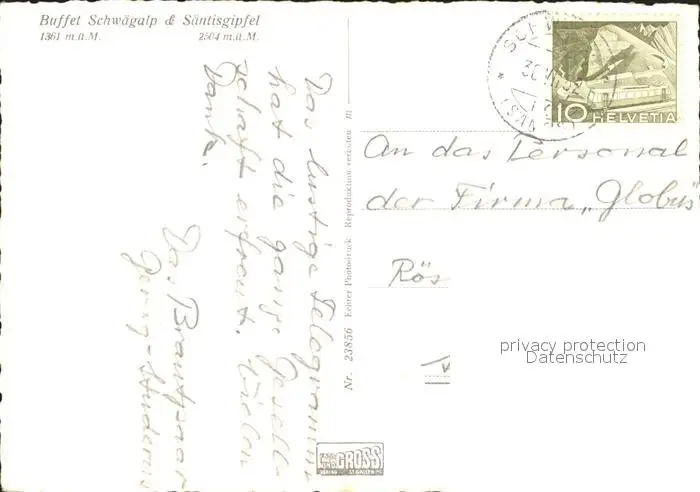 Buffet Schwägalp & Säntisgipfel
1361 m.ü.M. 2504 m.ü.M.
Das lustige Telegramm
hat die ganze Gesell-
schaft erfreut. Vielen
Dank.
Das Brautpaar
Nr. 23856 Echter Photodruck Reproduktion verboten
HELVETIA
10
An das Personal
der Firma „Globus"
Rös
privacy protection
Datenschutz
GROSS